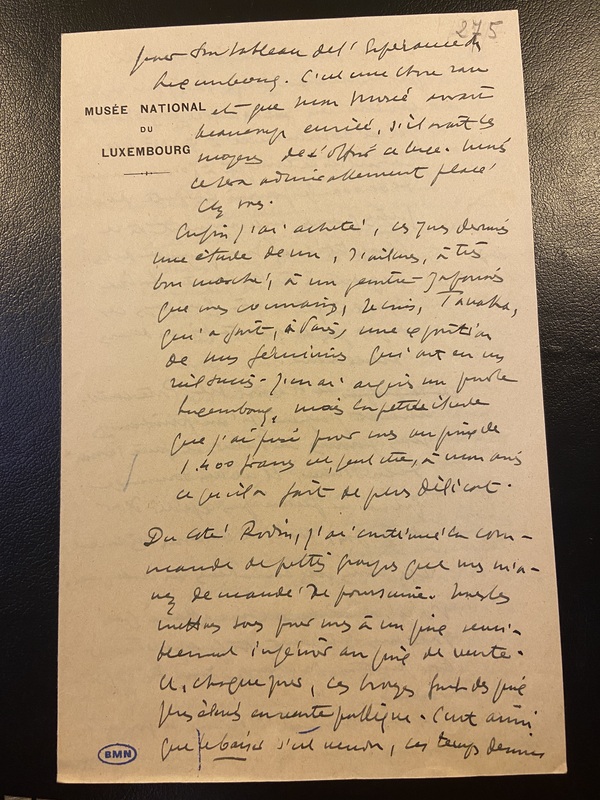 275
pour son tableau de l'Espérance du
Luxembourg. C'est une chose rare
MUSÉE NATIONAL
DU
LUXEMBOURG
et que mon Musée aurait
beaucoup enviée, s'il avait les
moyens de s'offrir ce luxe. Mais
ce sera admirablement placé
chez vous.
Enfin j'ai acheté, ces jours derniers
une étude de nu, d'ailleurs, à très
bon marché, à un peintre japonais
que vous connaissez, je crois, Tanaka,
qui a fait, à Paris, une exposition
de nus féminins qui ont eu un
réel succès. J'en ai acquis un pour le
Luxembourg, mais la petite étude
que j'ai prise pour vous au prix de
1.400 francs est, peut être, à mon avis
ce qu'il a fait de plus délicat.
Du côté Rodin, j'ai continué la com-
mande de petits groupes que vous m'a-
vez demandé de poursuivre. Nous les
mettons tous pour vous à un prix sensi-
blement inférieur au prix de vente.
Et, chaque jour, ces bronzes font des prix
plus élevés en vente publique. C'est ainsi
que le baiser s'est vendu, ces temps derniers
BMN